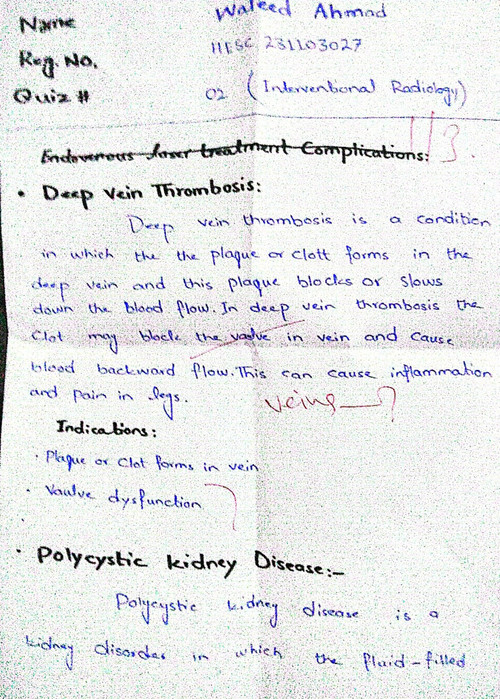 Name Waleed Ahmad
Reg. No. 231103027
Quiz # 02 (Interventional Radiology)
Endovenous laser treatment Complications:
113.
• Deep Vein Thrombosis:
Deep vein thrombosis is a condition
in which the the plaque or clott forms in the
deep vein and this plaque blocks or slows
down the blood flow. In deep vein thrombosis the
Clot may block the vaolve in vein and cause
blood backward flow. This can cause inflammation
and pain in legs. veins—?
Indications:
• Plaque or clot forms in vein
• Vaulve dysfunction
• Polycystic kidney Disease:-
Polycystic kidney disease is a
kidney disorder in which the fluid-filled